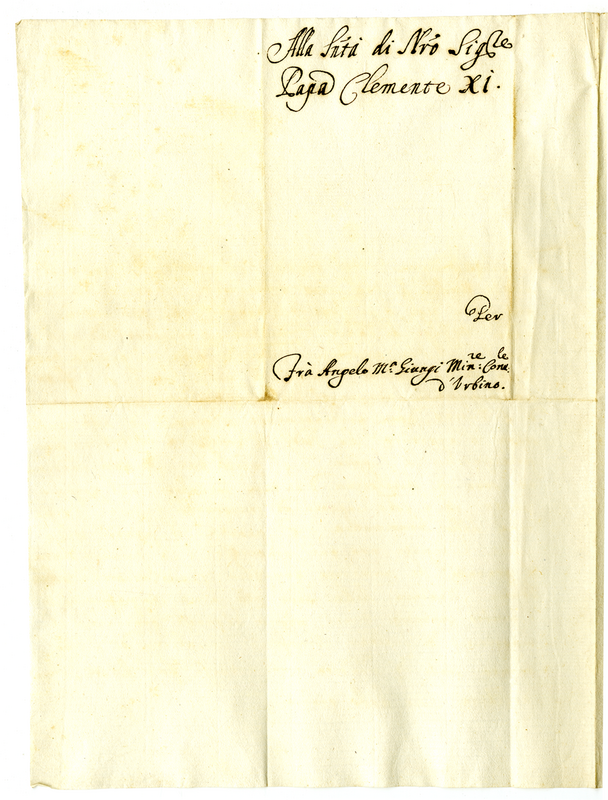 Alla Sntà di Nrō Sigre
Papa Clemente XI.
Per
Frà Angelo Ma Giungi Minre: Conle
d'Urbino.